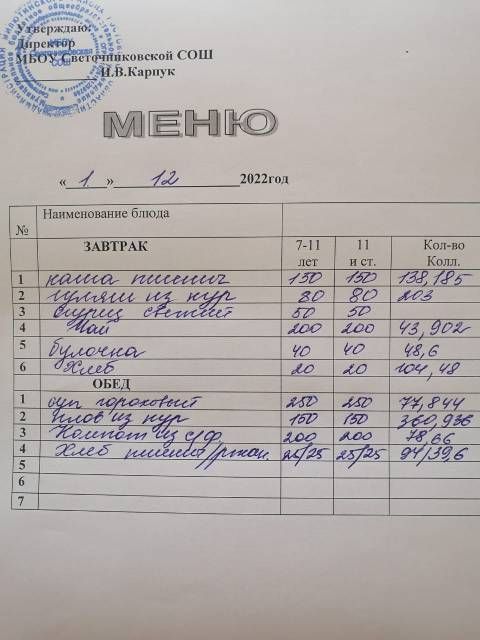 Утверждаю:
Директор
МБОУ Светочниковской СОШ
И.В.Карпук
МБОУ
СВЕТОЧНИКОВСКАЯ
СОШ
МЕНЮ
« 1 » 12 2022год
№ Наименование блюда
ЗАВТРАК 7-11 лет 11 и ст. Кол-во Колл.
1 каша пшенич 150 150 138,185
2 гуляш из кур 80 80 203
3 огурец свежий 50 50
4 Чай 200 200 43,902
5 булочка 40 40 48,6
6 Хлеб 20 20 104,48
ОБЕД
1 суп гороховый 250 250 77,844
2 плов из кур 150 150 360,936
3 Компот из с/ф. 200 200 78,66
4 Хлеб пшенич/ржан. 25/25 25/25 94/39,6
5
6
7